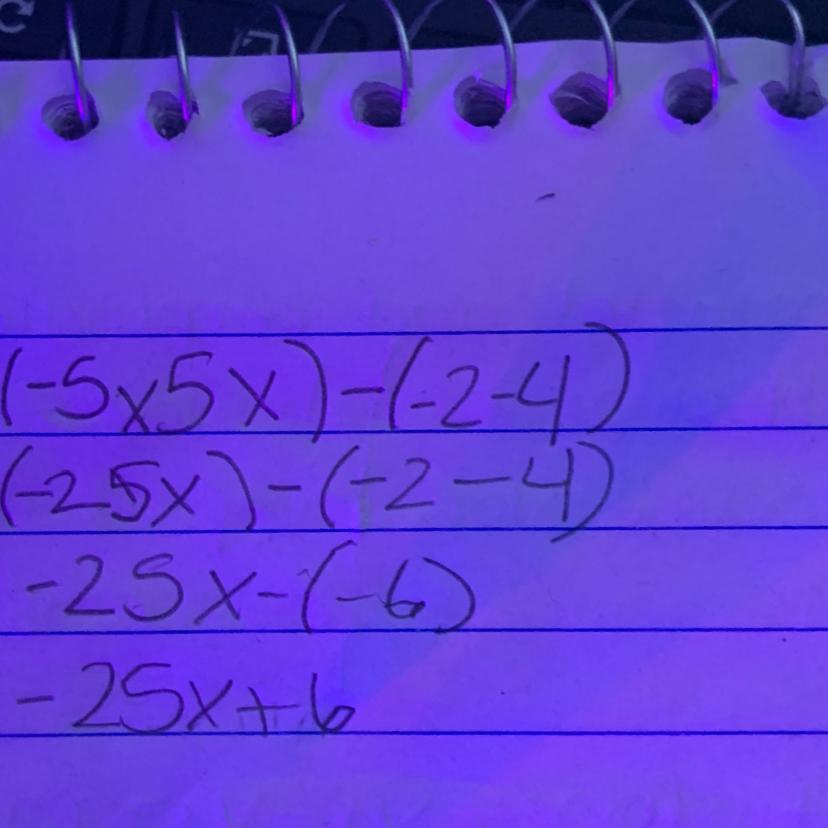 (-5x5x)-(-2-4)
(-25x)-(-2-4)
-25x-(-6)
-25x+6